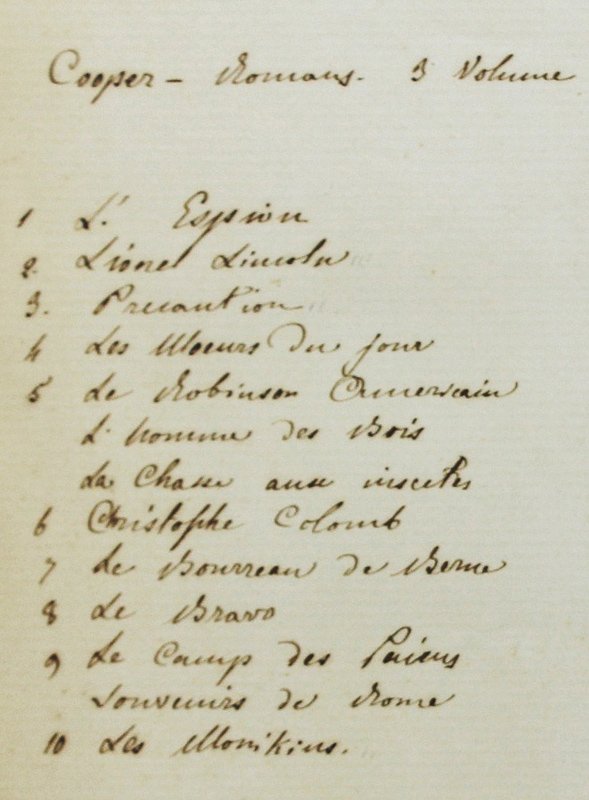 Cooper - Romans. 3 Volume
1 L'. Espion
2. Lionel Lincoln
3. Precaution
4 Les Moeurs du jour
5 Le Robinson Americain
L'homme des Bois
La Chasse aux insectes
6 Christophe Colomb
7 Le Bourreau de Berne
8 Le Bravo
9 Le Camp des Paiens
Souvenirs de Rome
10 Les Monikins.